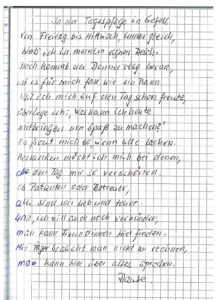 In der Tagespflege in Gefell
Von Freitag bis Mittwoch, immer gleich,
bleib' ich in meinem eignen Reich.
Doch kommt der Donnerstag heran,
ist es für mich fast wie ein Bann
Weil ich mich auf den Tag schon freute,
überlege ich: was kann ich heute
mitbringen um Spaß zu machen?
Es freut mich so, wenn alle lachen.
Bedanken möcht ich mich bei denen,
die den Tag mir so verschönen.
Ob Patienten oder Betreuer,
alle sind mir lieb und teuer.
Und, ich will auch noch verkünden,
man kann Freundinnen hier finden.
Mit Ärger braucht man nicht zu rechnen,
man kann hier über alles sprechen.
Danke